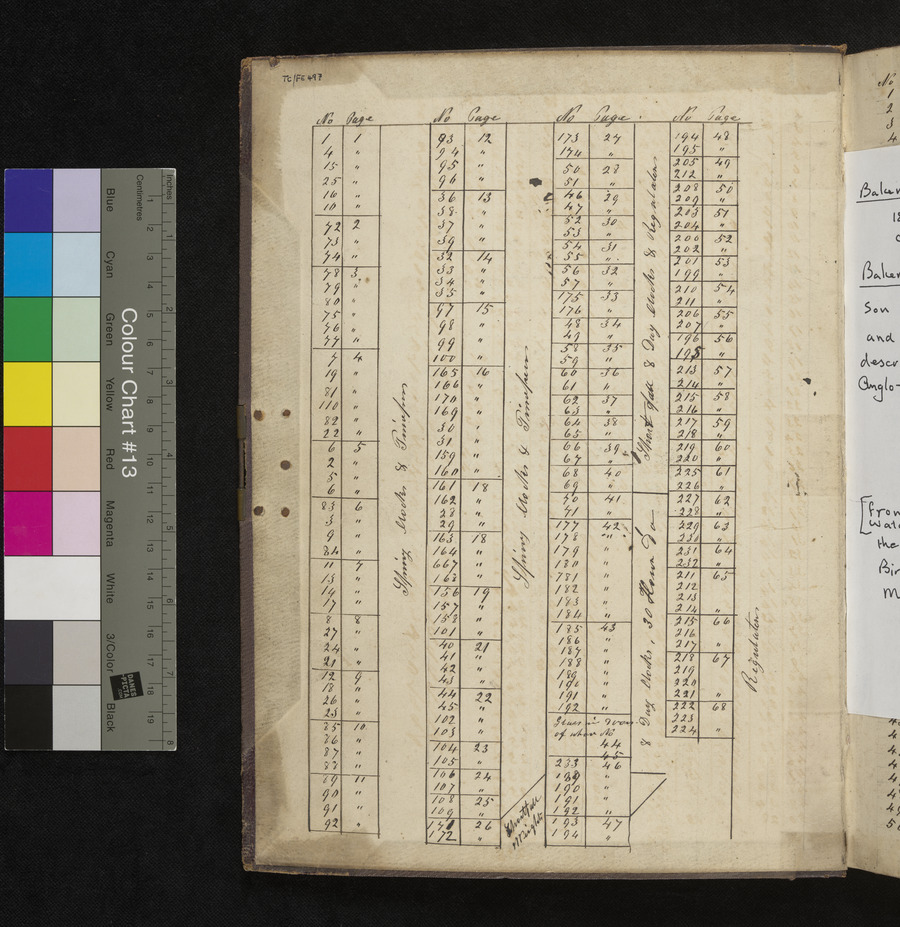 TC/FE 497
No Page
1 1
4 "
15 "
25 "
16 "
10 "
72 2
73 "
74 "
78 3
79 "
80 "
75 "
76 "
77 "
7 4
19 "
81 "
110 "
82 "
22 "
6 5
2 "
5 "
6 "
83 6
3 "
9 "
84 "
11 7
13 "
14 "
17 "
8 8
27 "
24 "
21 "
12 9
18 "
26 "
23 "
85 10
86 "
87 "
88 "
89 11
90 "
91 "
92 "
Spring Clocks & Timepieces
No Page
93 12
94 "
95 "
96 "
36 13
38 "
37 "
39 "
32 14
33 "
34 "
35 "
97 15
98 "
99 "
100 "
165 16
166 "
170 "
169 "
30 "
31 "
159 "
160 "
161 18
162 "
28 "
29 "
163 18
164 "
667 "
168 "
156 19
157 "
158 "
101 "
40 21
41 "
42 "
43 "
44 22
45 "
102 "
103 "
104 23
105 "
106 24
107 "
108 25
109 "
171 26
172 "
Spring Clocks & Timepieces
Short fall
Weights
No Page
173 27
174 "
50 28
51 "
46 29
47 "
52 30
53 "
54 31
55 "
56 32
57 "
175 33
176 "
48 34
49 "
58 35
59 "
60 36
61 "
62 37
63 "
64 38
65 "
66 39
67 "
68 40
69 "
70 41
71 "
177 42
178 "
179 "
180 "
781 "
182 "
183 "
184 "
185 43
186 "
187 "
188 "
189 "
190 "
191 "
192 "
of when No
44
45
233 46
189 "
190 "
191 "
192 "
193 47
194 "
Short fall 8 Day Clocks & Regulators
8 Day Clocks, 30 Hour Do
No Page
194 48
195 "
205 49
212 "
208 50
209 "
203 51
204 "
200 52
202 "
201 53
199 "
210 54
211 "
206 55
207 "
196 56
198 "
213 57
214 "
215 58
216 "
217 59
218 "
219 60
220 "
225 61
226 "
227 62
228 "
229 63
230 "
231 64
232 "
211 65
212
213
214 "
215 66
216
217 "
218 67
219
220
221 "
222 68
223
224 "
Regulators
No
1
2
3
4
Baker
Baker
Son
and
descr
Anglo-
[From
the
Bir
Colour Chart #13
Blue
Cyan
Green
Yellow
Red
Magenta
White
3/Color
Black
Centimetres
Inches
1 2 3 4 5 6 7 8 9 10 11 12 13 14 15 16 17 18 19
1 2 3 4 5 6 7 8
DANES
-PICTA